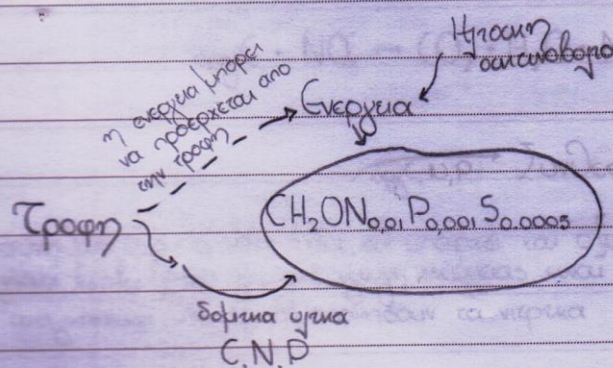 Ηλιακη
ακτινοβολια
η ενεργεια μπορει
να προερχεται απο
την τροφη
Ενεργεια
Τροφη
CH₂ON₀,₀₁P₀,₀₀₁S₀.₀₀₀₅
δομικα υλικα
C,N,P